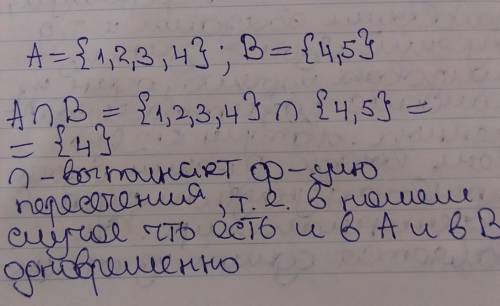 A = {1,2,3,4}; B = {4,5}
A ∩ B = {1,2,3,4} ∩ {4,5} =
= {4}
∩ - выполняет ф-цию
пересечения, т. е. в нашем
случае что есть и в A и в B
одновременно